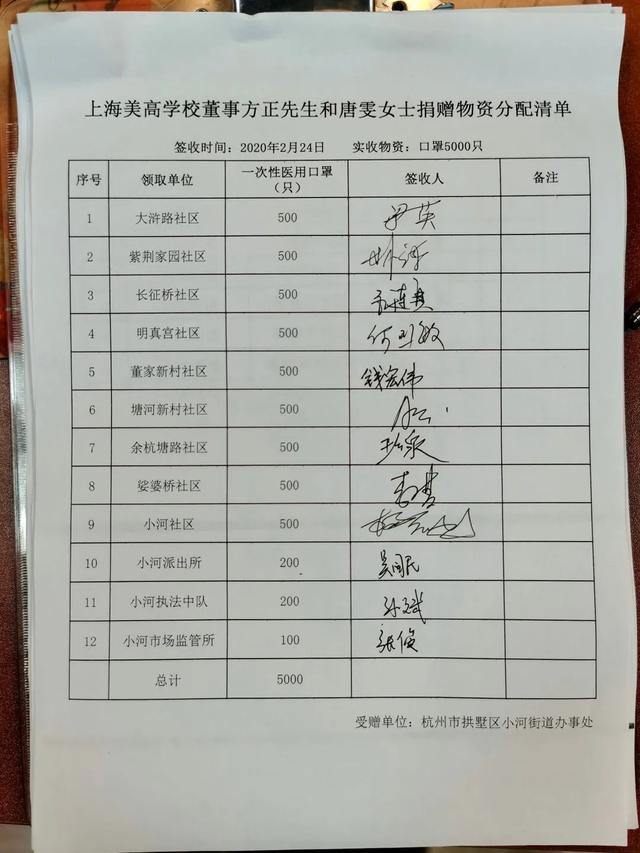 上海美高学校董事方正先生和唐雯女士捐赠物资分配清单
签收时间：2020年2月24日 实收物资：口罩5000只
序号 领取单位 一次性医用口罩（只） 签收人 备注
1 大浒路社区 500
2 紫荆家园社区 500
3 长征桥社区 500
4 明真宫社区 500
5 董家新村社区 500 钱宏伟
6 塘河新村社区 500
7 余杭塘路社区 500
8 娑婆桥社区 500
9 小河社区 500
10 小河派出所 200 吴国民
11 小河执法中队 200 孙斌
12 小河市场监管所 100 张俊
总计 5000
受赠单位：杭州市拱墅区小河街道办事处